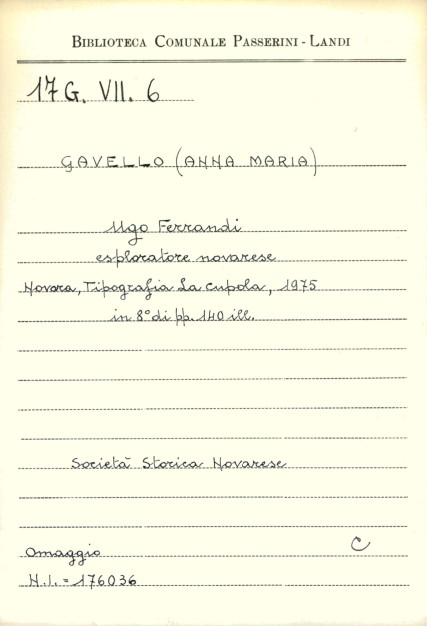 BIBLIOTECA COMUNALE PASSERINI - LANDI
17 G. VII. 6
GAVELLO (ANNA MARIA)
Ugo Ferrandi
esploratore novarese
Novara, Tipografia La Cupola, 1975
in 8° di pp. 140 ill.
Società Storica Novarese
C
Omaggio
N.I. = 176036